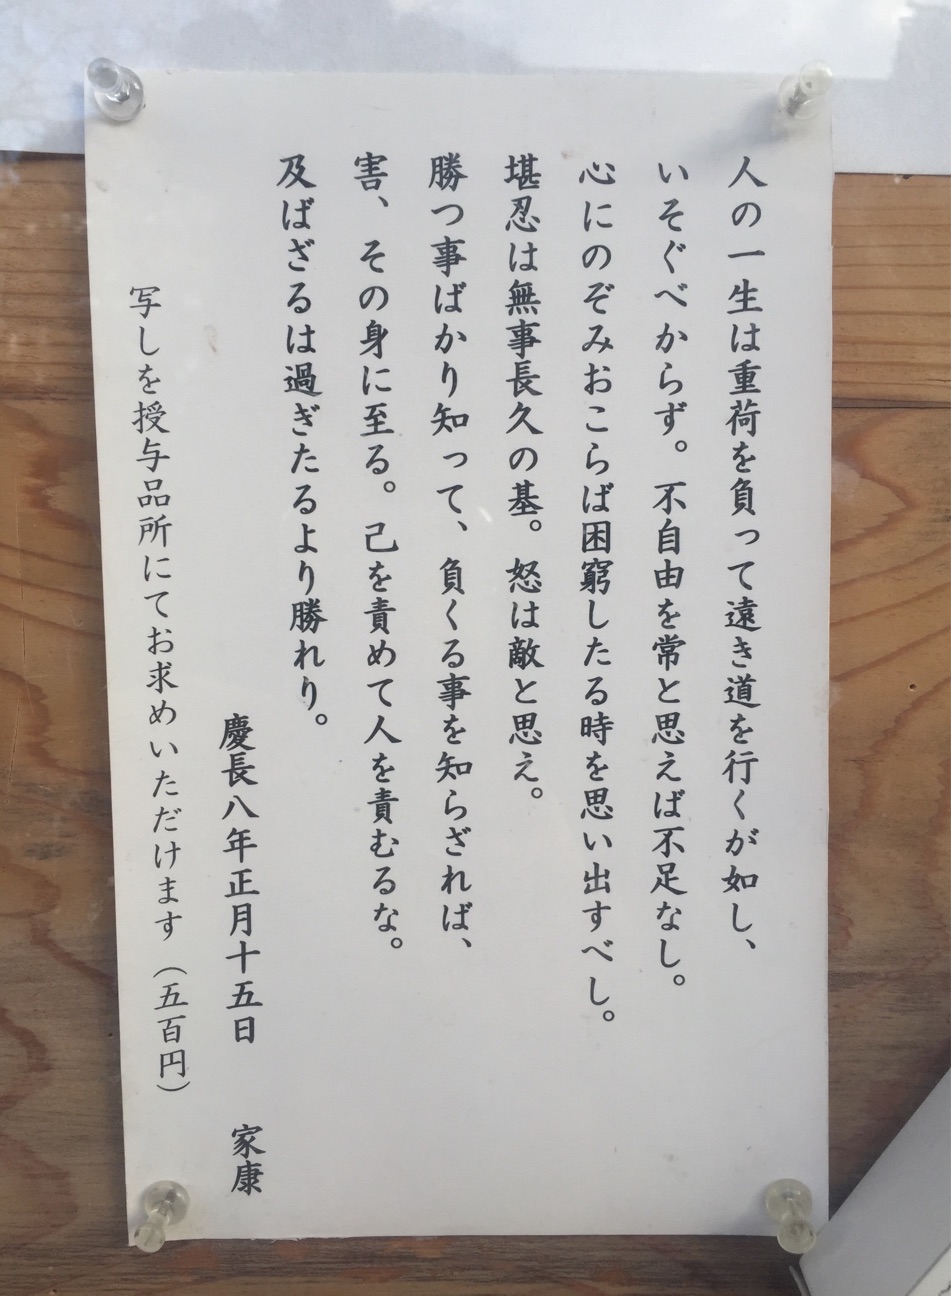 人の一生は重荷を負って遠き道を行くが如し、
いそぐべからず。不自由を常と思えば不足なし。
心にのぞみおこらば困窮したる時を思い出すべし。
堪忍は無事長久の基。怒は敵と思え。
勝つ事ばかり知って、負くる事を知らざれば、
害、その身に至る。己を責めて人を責むるな。
及ばざるは過ぎたるより勝れり。
慶長八年正月十五日　家康
写しを授与品所にてお求めいただけます（五百円）